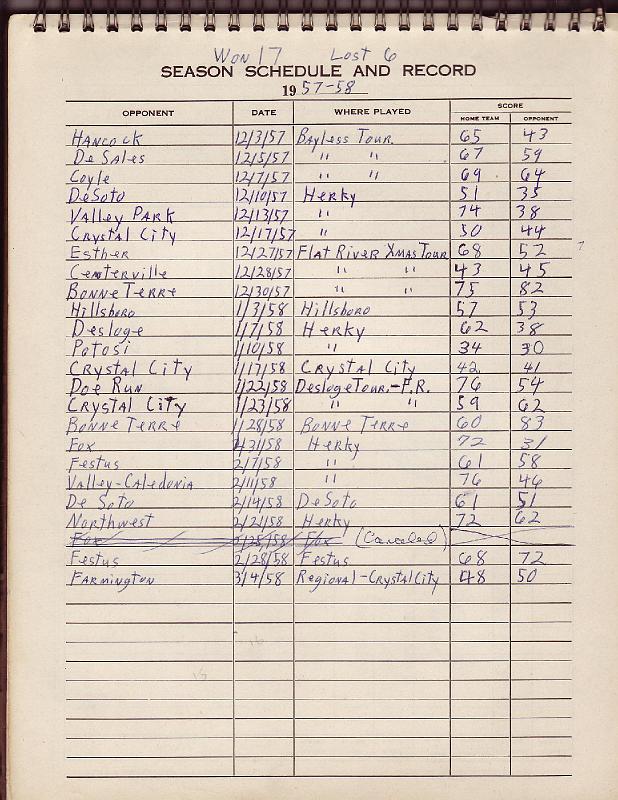 Won 17 Lost 6
SEASON SCHEDULE AND RECORD
19 57-58
OPPONENT DATE WHERE PLAYED SCORE
HOME TEAM OPPONENT
Hancock 12/3/57 Bayless Tour. 65 43
De Sales 12/5/57 " " 67 59
Coyle 12/7/57 " " 69 64
DeSoto 12/10/57 Herky 51 35
Valley Park 12/13/57 " 74 38
Crystal City 12/17/57 " 50 44
Esther 12/27/57 Flat River Xmas Tour 68 52
Centerville 12/28/57 " " 43 45
Bonne Terre 12/30/57 " " 75 82
Hillsboro 1/3/58 Hillsboro 57 53
Desloge 1/7/58 Herky 62 38
Potosi 1/10/58 " 34 30
Crystal City 1/17/58 Crystal City 42 41
Doe Run 1/22/58 Desloge Tour.-F.R. 76 54
Crystal City 1/23/58 " " 59 62
Bonne Terre 1/28/58 Bonne Terre 60 83
Fox 1/31/58 Herky 72 31
Festus 2/7/58 " 61 58
Valley-Caledonia 2/11/58 " 76 46
De Soto 2/14/58 DeSoto 61 51
Northwest 2/21/58 Herky 72 62
Fox 2/25/58 Fox (Canceled)
Festus 2/28/58 Festus 68 72
Farmington 3/4/58 Regional-Crystal City 48 50